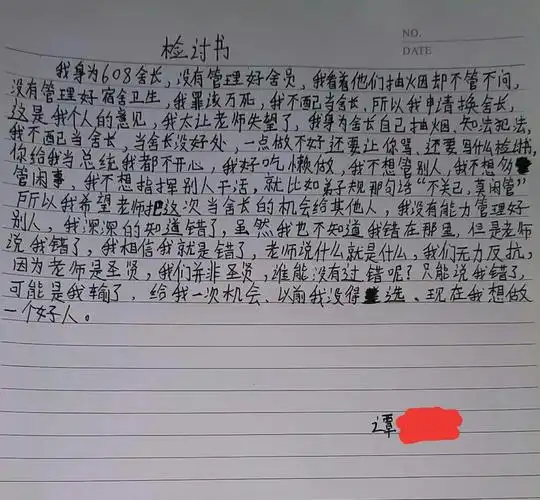 NO.
DATE
检讨书
我身为608舍长，没有管理好舍员，我看着他们抽烟却不管不问，
没有管理好宿舍卫生，我罪该万死，我不配当舍长，所以我申请换舍长，
这是我个人的意见，我太让老师失望了，我身为舍长自己抽烟、知法犯法，
我不配当舍长，当舍长没好处，一点做不好还要让你骂，还要写什么检讨，
你给我当总统我都不开心，我好吃懒做，我不想管别人，我不想多
管闲事，我不想指挥别人干活，就比如弟子规那句话“不关己，莫闲管”
所以我希望老师把这次当舍长的机会给其他人，我没有能力管理好
别人，我深深的知道错了，虽然我也不知道我错在那里，但是老师
说我错了，我相信我就是错了，老师说什么就是什么，我们无力反抗，
因为老师是圣贤，我们并非圣贤，谁能没有过错呢？只能说我错了，
可能是我输了，给我一次机会、以前我没得选、现在我想做
一个好人。
谭